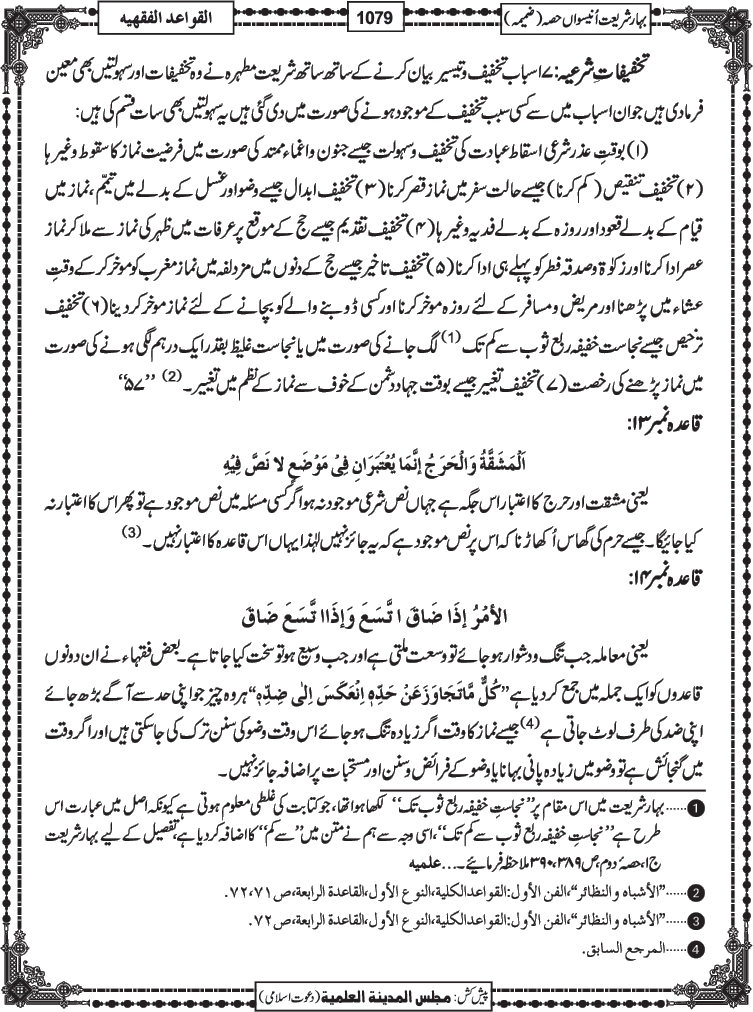 بہار شریعت اُنیسواں حصہ (ضمیمہ)
1079
القواعد الفقهيه
تخفیفاتِ شرعیہ: ۷ اسباب تخفیف و تیسیر بیان کرنے کے ساتھ ساتھ شریعت مطہرہ نے وہ تخفیفات اور سہولتیں بھی معین
فرمادی ہیں جو ان اسباب میں سے کسی سبب تخفیف کے موجود ہونے کی صورت میں دی گئی ہیں یہ سہولتیں بھی سات قسم کی ہیں:
(۱) بوقتِ عذر شرعی اسقاط عبادت کی تخفیف و سہولت جیسے جنون و اغماء ممتد کی صورت میں فرضیت نماز کا سقوط وغیر ہا
(۲) تخفیف تنقیص (کم کرنا) جیسے حالت سفر میں نماز قصر کرنا (۳) تخفیف ابدال جیسے وضو اور غسل کے بدلے میں تیمّم، نماز میں
قیام کے بدلے قعود اور روزہ کے بدلے فدیہ وغیر ہا (۴) تخفیف تقدیم جیسے حج کے موقع پر عرفات میں ظہر کی نماز سے ملا کر نماز
عصر ادا کرنا اور زکوٰۃ و صدقہ فطر کو پہلے ہی ادا کرنا (۵) تخفیف تاخیر جیسے حج کے دنوں میں مزدلفہ میں نماز مغرب کو مؤخر کر کے وقتِ
عشاء میں پڑھنا اور مریض و مسافر کے لئے روزہ مؤخر کرنا اور کسی ڈوبنے والے کو بچانے کے لئے نماز مؤخر کر دینا (۶) تخفیف
ترخیص جیسے نجاست خفیفہ ربع ثوب سے کم تک (1) لگ جانے کی صورت میں یا نجاست غلیظ بقدر ایک درہم لگی ہونے کی صورت
میں نماز پڑھنے کی رخصت (۷) تخفیف تغییر جیسے بوقت جہاد دشمن کے خوف سے نماز کے نظم میں تغییر۔ (2) ’’۵۷‘‘
قاعدہ نمبر ۱۳:
اَلْمَشَقَّةُ وَالْحَرَجُ اِنَّمَا يُعْتَبَرَانِ فِيْ مَوْضَعٍ لا نَصَّ فِيْهِ
یعنی مشقت اور حرج کا اعتبار اس جگہ ہے جہاں نص شرعی موجود نہ ہو اگر کسی مسئلہ میں نص موجود ہے تو پھر اس کا اعتبار نہ
کیا جائیگا۔ جیسے حرم کی گھاس اُکھاڑنا کہ اس پر نص موجود ہے کہ یہ جائز نہیں لہٰذا یہاں اس قاعدہ کا اعتبار نہیں۔ (3)
قاعدہ نمبر ۱۴:
الأمْرُ إذَا ضَاقَ اتَّسَعَ وَإذَاا تَّسَعَ ضَاقَ
یعنی معاملہ جب تنگ و دشوار ہو جائے تو وسعت ملتی ہے اور جب وسیع ہو تو سخت کیا جاتا ہے۔ بعض فقہاء نے ان دونوں
قاعدوں کو ایک جملہ میں جمع کر دیا ہے ’’كُلُّ مَّا تَجَاوَزَ عَنْ حَدِّهٖ اِنْعَكَسَ اِلٰى ضِدِّهٖ‘‘ ہر وہ چیز جو اپنی حد سے آگے بڑھ جائے
اپنی ضد کی طرف لوٹ جاتی ہے (4) جیسے نماز کا وقت اگر زیادہ تنگ ہو جائے اس وقت وضو کی سنن ترک کی جاسکتی ہیں اور اگر وقت
میں گنجائش ہے تو وضو میں زیادہ پانی بہانا یا وضو کے فرائض و سنن اور مستحبات پر اضافہ جائز نہیں۔
1 ......بہار شریعت میں اس مقام پر ’’نجاستِ خفیفہ ربع ثوب تک‘‘ لکھا ہوا تھا، جو کتابت کی غلطی معلوم ہوتی ہے کیونکہ اصل میں عبارت اس
طرح ہے ’’نجاستِ خفیفہ ربع ثوب سے کم تک‘‘، اسی وجہ سے ہم نے متن میں ’’سے کم‘‘ کا اضافہ کر دیا ہے، تفصیل کے لیے بہار شریعت
ج۱، حصہ دوم، ص ۳۸۹، ۳۹۰ ملاحظہ فرمائیے۔...علمیه
2 ......’’الأشباه والنظائر‘‘، الفن الأول: القواعد الكلية، النوع الأول، القاعدة الرابعة، ص ۷۱، ۷۲.
3 ......’’الأشباه والنظائر‘‘، الفن الأول: القواعد الكلية، النوع الأول، القاعدة الرابعة، ص ۷۲.
4 ......المرجع السابق.
پیش کش: مجلس المدينة العلمية (دعوت اسلامی)